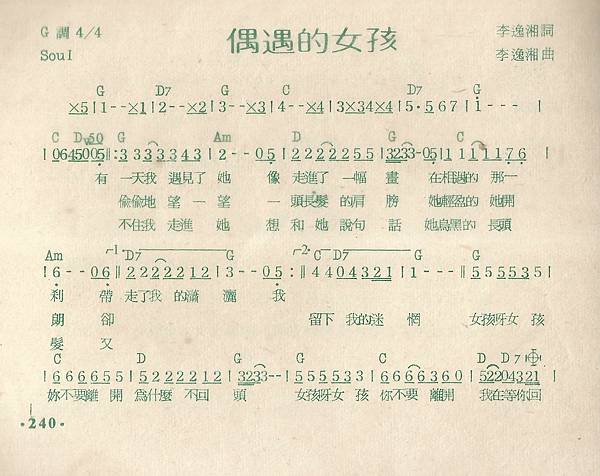 G 調 4/4
偶遇的女孩
李逸湘詞
Soul
李逸湘曲
G D7 G C D7 G
×5|1--×1|2--×2|3--×3|4--×4|3×34×4|5·567|1---|
C D7 G Am D G C
|0645005|:3333343|2--05|
有 一天我 遇見了 她 像 走進了 一幅 畫 在相遇的 那一
偷偷地 望 一 望 一 頭長髮的肩 膀 她輕盈的 她開
不住我 走進 她 想 和她 說句 話 她烏黑的 長頭
Am 1. D7 G 2. C D7 G G
|6--06||2222212|3--05:||44043321|1---|5555535|
利 帶 走了我 的瀟 灑 我
朗 卻 留下 我的迷 惘 女孩呀女 孩
髮 又
C D G G C D D7
|6666612|5222212|3233--|5555535|6666360|52204321|
妳不要離 開 為什麼 不回 頭 女孩呀女 孩 你不要 離開 我在等你回
·240·